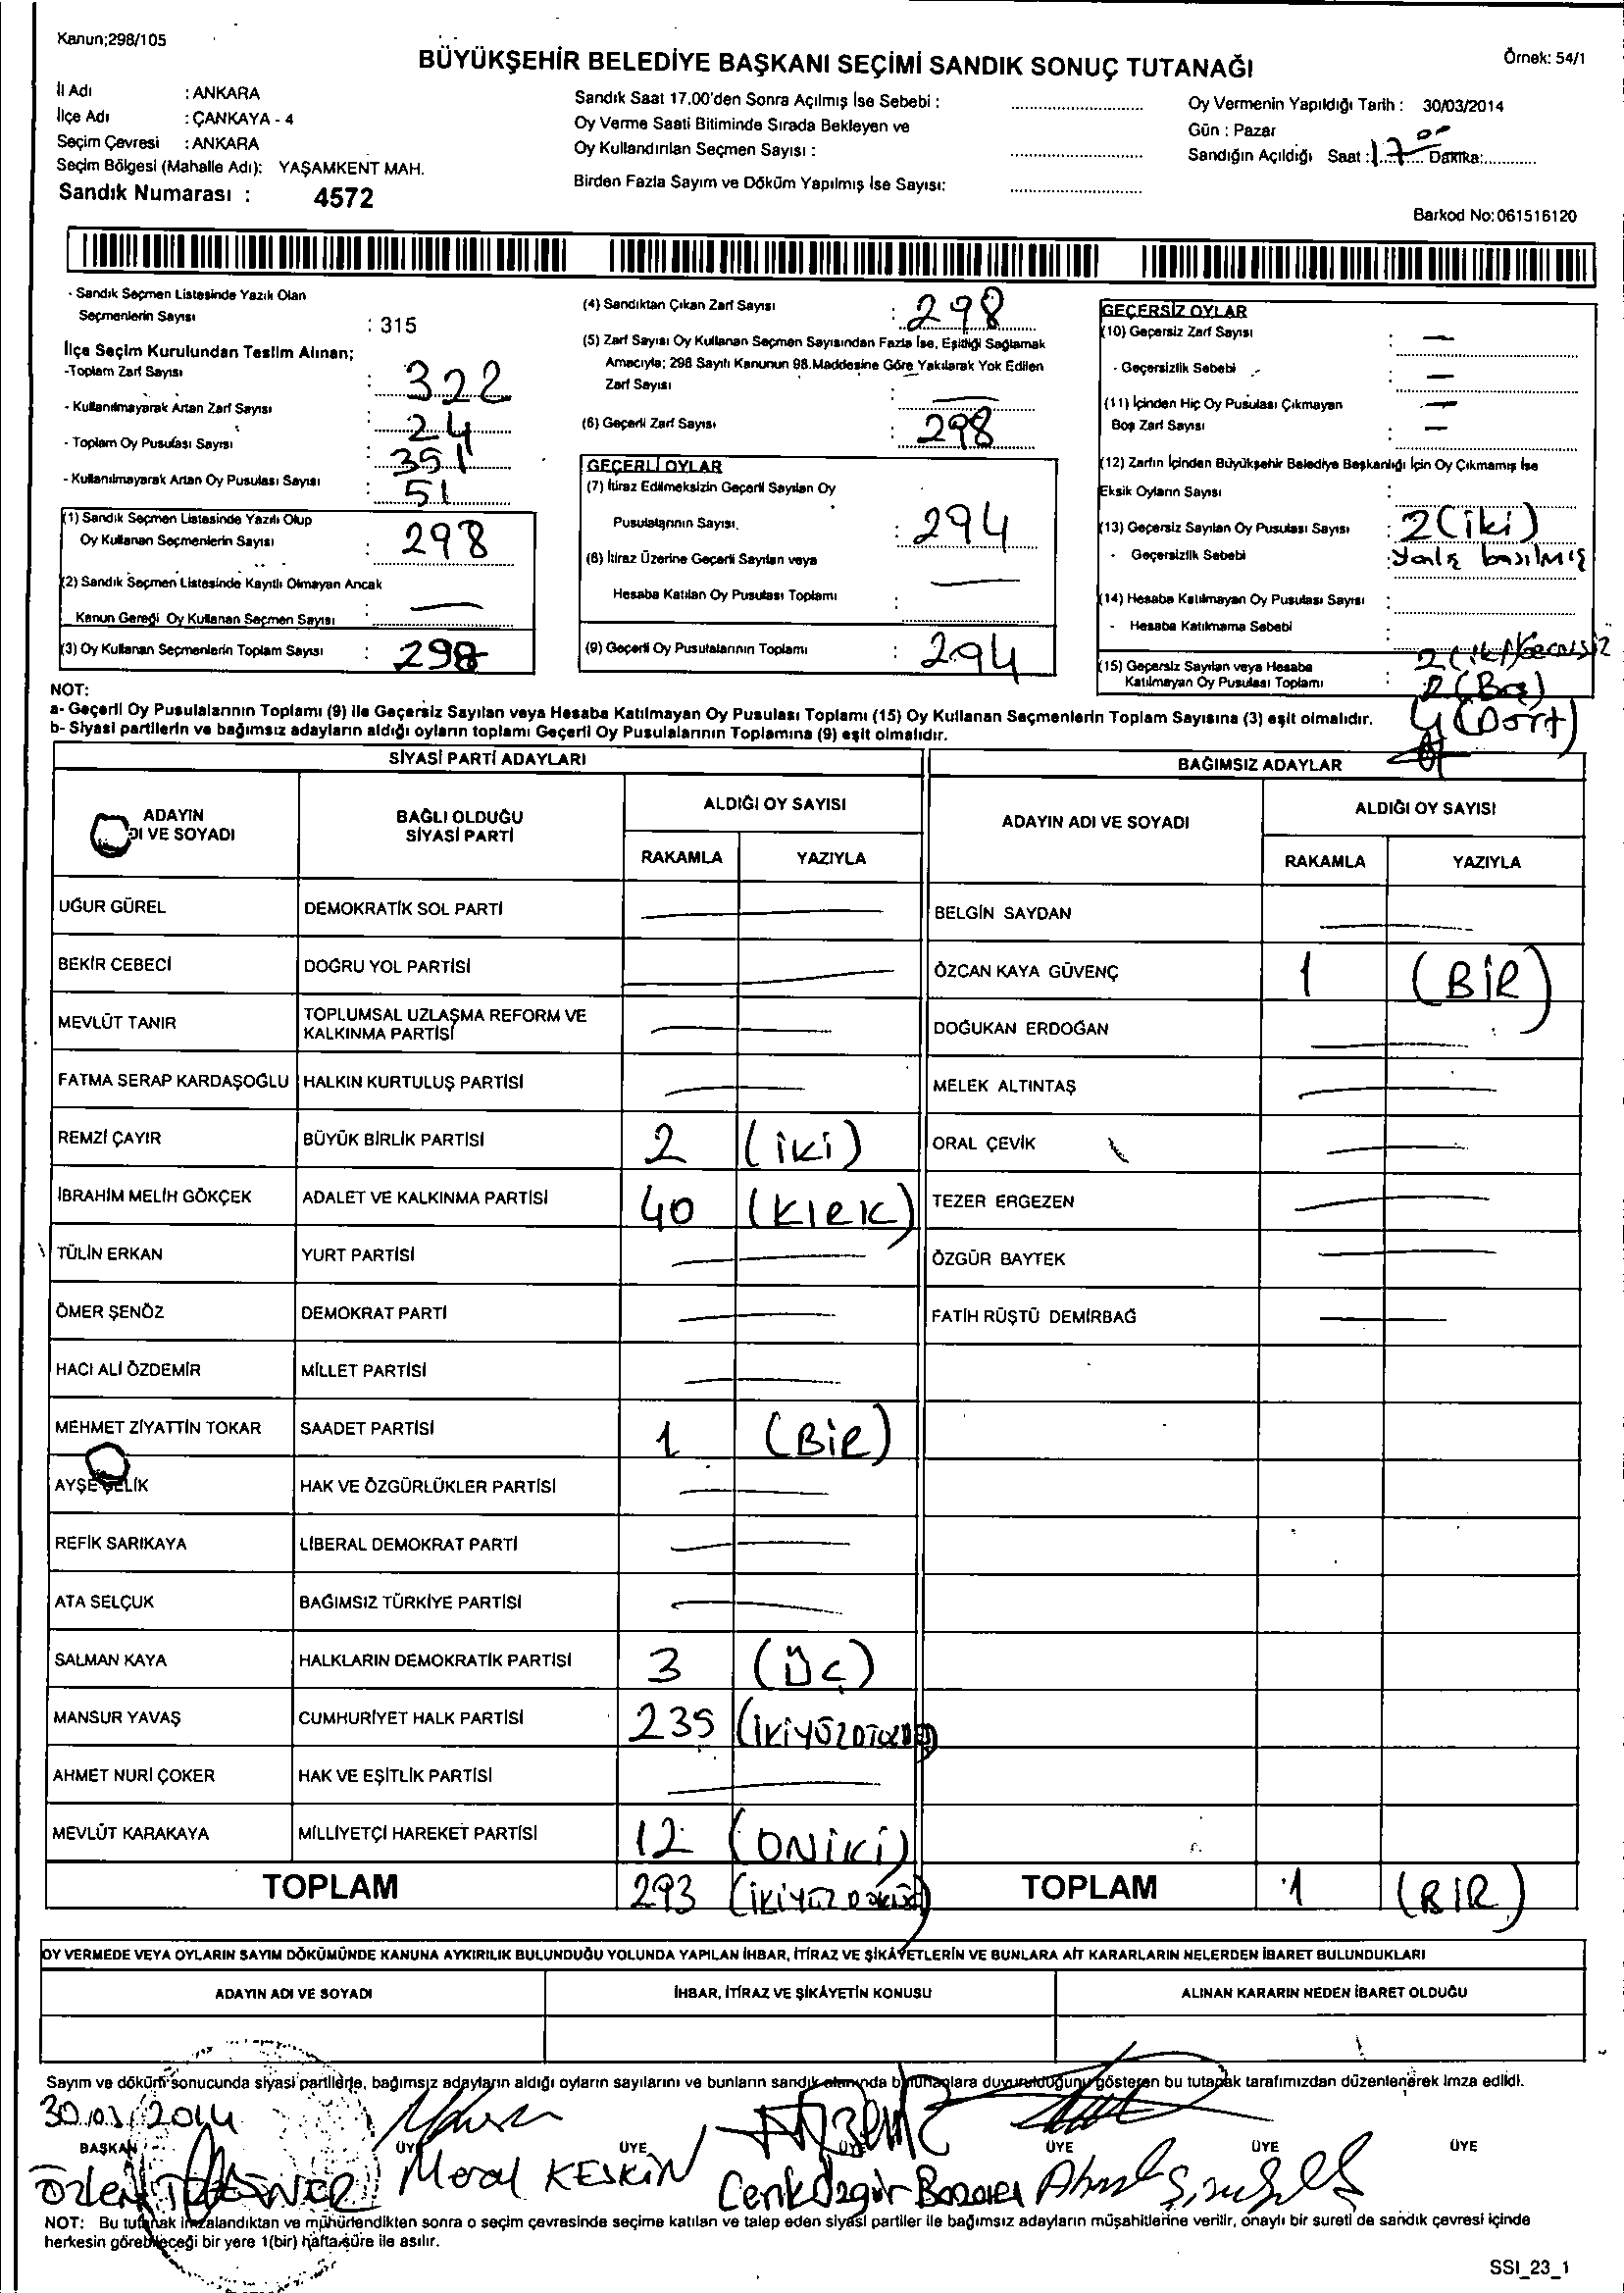 Kanun;298/105
BÜYÜKŞEHİR BELEDİYE BAŞKANI SEÇİMİ SANDIK SONUÇ TUTANAĞI
Örnek: 54/1
İl Adı : ANKARA
İlçe Adı : ÇANKAYA - 4
Seçim Çevresi : ANKARA
Seçim Bölgesi (Mahalle Adı): YAŞAMKENT MAH.
Sandık Numarası : 4572
Sandık Saat 17.00'den Sonra Açılmış İse Sebebi :
Oy Verme Saati Bitiminde Sırada Bekleyen ve
Oy Kullandırılan Seçmen Sayısı :
Birden Fazla Sayım ve Döküm Yapılmış İse Sayısı:
Oy Vermenin Yapıldığı Tarih : 30/03/2014
Gün : Pazar
Sandığın Açıldığı Saat : 17 00 Dakika:
Barkod No: 061516120
- Sandık Seçmen Listesinde Yazılı Olan
Seçmenlerin Sayısı : 315
İlçe Seçim Kurulundan Teslim Alınan;
-Toplam Zarf Sayısı : 322
- Kullanılmayarak Artan Zarf Sayısı : 24
- Toplam Oy Pusulası Sayısı : 351
- Kullanılmayarak Artan Oy Pusulası Sayısı : 51
(1) Sandık Seçmen Listesinde Yazılı Olup
Oy Kullanan Seçmenlerin Sayısı : 298
(2) Sandık Seçmen Listesinde Kayıtlı Olmayan Ancak
Kanun Gereği Oy Kullanan Seçmen Sayısı : —
(3) Oy Kullanan Seçmenlerin Toplam Sayısı : 298
(4) Sandıktan Çıkan Zarf Sayısı : 298
(5) Zarf Sayısı Oy Kullanan Seçmen Sayısından Fazla İse, Eşitliği Sağlamak
Amacıyla; 298 Sayılı Kanunun 98.Maddesine Göre Yakılarak Yok Edilen
Zarf Sayısı : —
(6) Geçerli Zarf Sayısı : 298
GEÇERLİ OYLAR
(7) İtiraz Edilmeksizin Geçerli Sayılan Oy
Pusulalarının Sayısı : 294
(8) İtiraz Üzerine Geçerli Sayılan veya
Hesaba Katılan Oy Pusulası Toplamı : —
(9) Geçerli Oy Pusulalarının Toplamı : 294
GEÇERSİZ OYLAR
(10) Geçersiz Zarf Sayısı : —
- Geçersizlik Sebebi : —
(11) İçinden Hiç Oy Pusulası Çıkmayan —
Boş Zarf Sayısı : —
(12) Zarfın İçinden Büyükşehir Belediye Başkanlığı İçin Oy Çıkmamış İse
Eksik Oyların Sayısı :
(13) Geçersiz Sayılan Oy Pusulası Sayısı : 2 (iki)
- Geçersizlik Sebebi : basılmış
(14) Hesaba Katılmayan Oy Pusulası Sayısı :
- Hesaba Katılmama Sebebi :
(15) Geçersiz Sayılan veya Hesaba 2 (iki) Geçersiz
Katılmayan Oy Pusulası Toplamı : 2 (Boş)
4 (Dört)
NOT:
a- Geçerli Oy Pusulalarının Toplamı (9) ile Geçersiz Sayılan veya Hesaba Katılmayan Oy Pusulası Toplamı (15) Oy Kullanan Seçmenlerin Toplam Sayısına (3) eşit olmalıdır.
b- Siyasi partilerin ve bağımsız adayların aldığı oyların toplamı Geçerli Oy Pusulalarının Toplamına (9) eşit olmalıdır.
SİYASİ PARTİ ADAYLARI
ADAYIN
ADI VE SOYADI
BAĞLI OLDUĞU
SİYASİ PARTİ
ALDIĞI OY SAYISI
RAKAMLA YAZIYLA
UĞUR GÜREL DEMOKRATİK SOL PARTİ —
BEKİR CEBECİ DOĞRU YOL PARTİSİ —
MEVLÜT TANIR TOPLUMSAL UZLAŞMA REFORM VE
KALKINMA PARTİSİ —
FATMA SERAP KARDAŞOĞLU HALKIN KURTULUŞ PARTİSİ —
REMZİ ÇAYIR BÜYÜK BİRLİK PARTİSİ 2 (iki)
İBRAHİM MELİH GÖKÇEK ADALET VE KALKINMA PARTİSİ 40 (KIRK)
TÜLİN ERKAN YURT PARTİSİ —
ÖMER ŞENÖZ DEMOKRAT PARTİ —
HACI ALİ ÖZDEMİR MİLLET PARTİSİ —
MEHMET ZİYATTİN TOKAR SAADET PARTİSİ 1 (BİR)
AYŞE ÇELİK HAK VE ÖZGÜRLÜKLER PARTİSİ —
REFİK SARIKAYA LİBERAL DEMOKRAT PARTİ —
ATA SELÇUK BAĞIMSIZ TÜRKİYE PARTİSİ —
SALMAN KAYA HALKLARIN DEMOKRATİK PARTİSİ 3 (ÜÇ)
MANSUR YAVAŞ CUMHURİYET HALK PARTİSİ 235
AHMET NURİ ÇOKER HAK VE EŞİTLİK PARTİSİ —
MEVLÜT KARAKAYA MİLLİYETÇİ HAREKET PARTİSİ 12 (ONİKİ)
TOPLAM 293
BAĞIMSIZ ADAYLAR
ADAYIN ADI VE SOYADI
ALDIĞI OY SAYISI
RAKAMLA YAZIYLA
BELGİN SAYDAN —
ÖZCAN KAYA GÜVENÇ 1 (BİR)
DOĞUKAN ERDOĞAN —
MELEK ALTINTAŞ —
ORAL ÇEVİK —
TEZER ERGEZEN —
ÖZGÜR BAYTEK —
FATİH RÜŞTÜ DEMİRBAĞ —
TOPLAM 1 (BİR)
OY VERMEDE VEYA OYLARIN SAYIM DÖKÜMÜNDE KANUNA AYKIRILIK BULUNDUĞU YOLUNDA YAPILAN İHBAR, İTİRAZ VE ŞİKÂYETLERİN VE BUNLARA AİT KARARLARIN NELERDEN İBARET BULUNDUKLARI
ADAYIN ADI VE SOYADI İHBAR, İTİRAZ VE ŞİKÂYETİN KONUSU ALINAN KARARIN NEDEN İBARET OLDUĞU
Sayım ve döküm sonucunda siyasi partilerle, bağımsız adayların aldığı oyların sayılarını ve bunların sandık alanında bulunanlara duyurulduğunu gösteren bu tutanak tarafımızdan düzenlenerek imza edildi.
30/03/2014
BAŞKAN ÜYE ÜYE ÜYE ÜYE ÜYE ÜYE
Meral KESKİN Cenk Özgür
NOT: Bu tutanak imzalandıktan ve mühürlendikten sonra o seçim çevresinde seçime katılan ve talep eden siyasi partiler ile bağımsız adayların müşahitlerine verilir, onaylı bir sureti de sandık çevresi içinde
herkesin görebileceği bir yere 1(bir) hafta süre ile asılır.
SSI_23_1